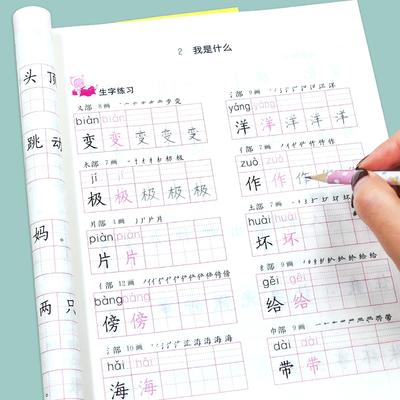 头 顶
跳 动
妈 。
两 只
2 我是什么
生字练习
又部 8画
biàn biàn
变 变 变 变 变
木部 7画
jí jí
极 极 极 极 极
片部 4画
piàn piàn
片 片
亻部 12画
bàng bàng
傍 傍
氵部 10画
hǎi hǎi
海 海
氵部 9画
yáng yáng
洋 洋 洋 洋 洋
亻部 7画
zuò zuò
作 作 作
土部 7画
huài huài
坏 坏
纟部 9画
gěi gěi
给 给
巾部 9画
dài dài
带 带